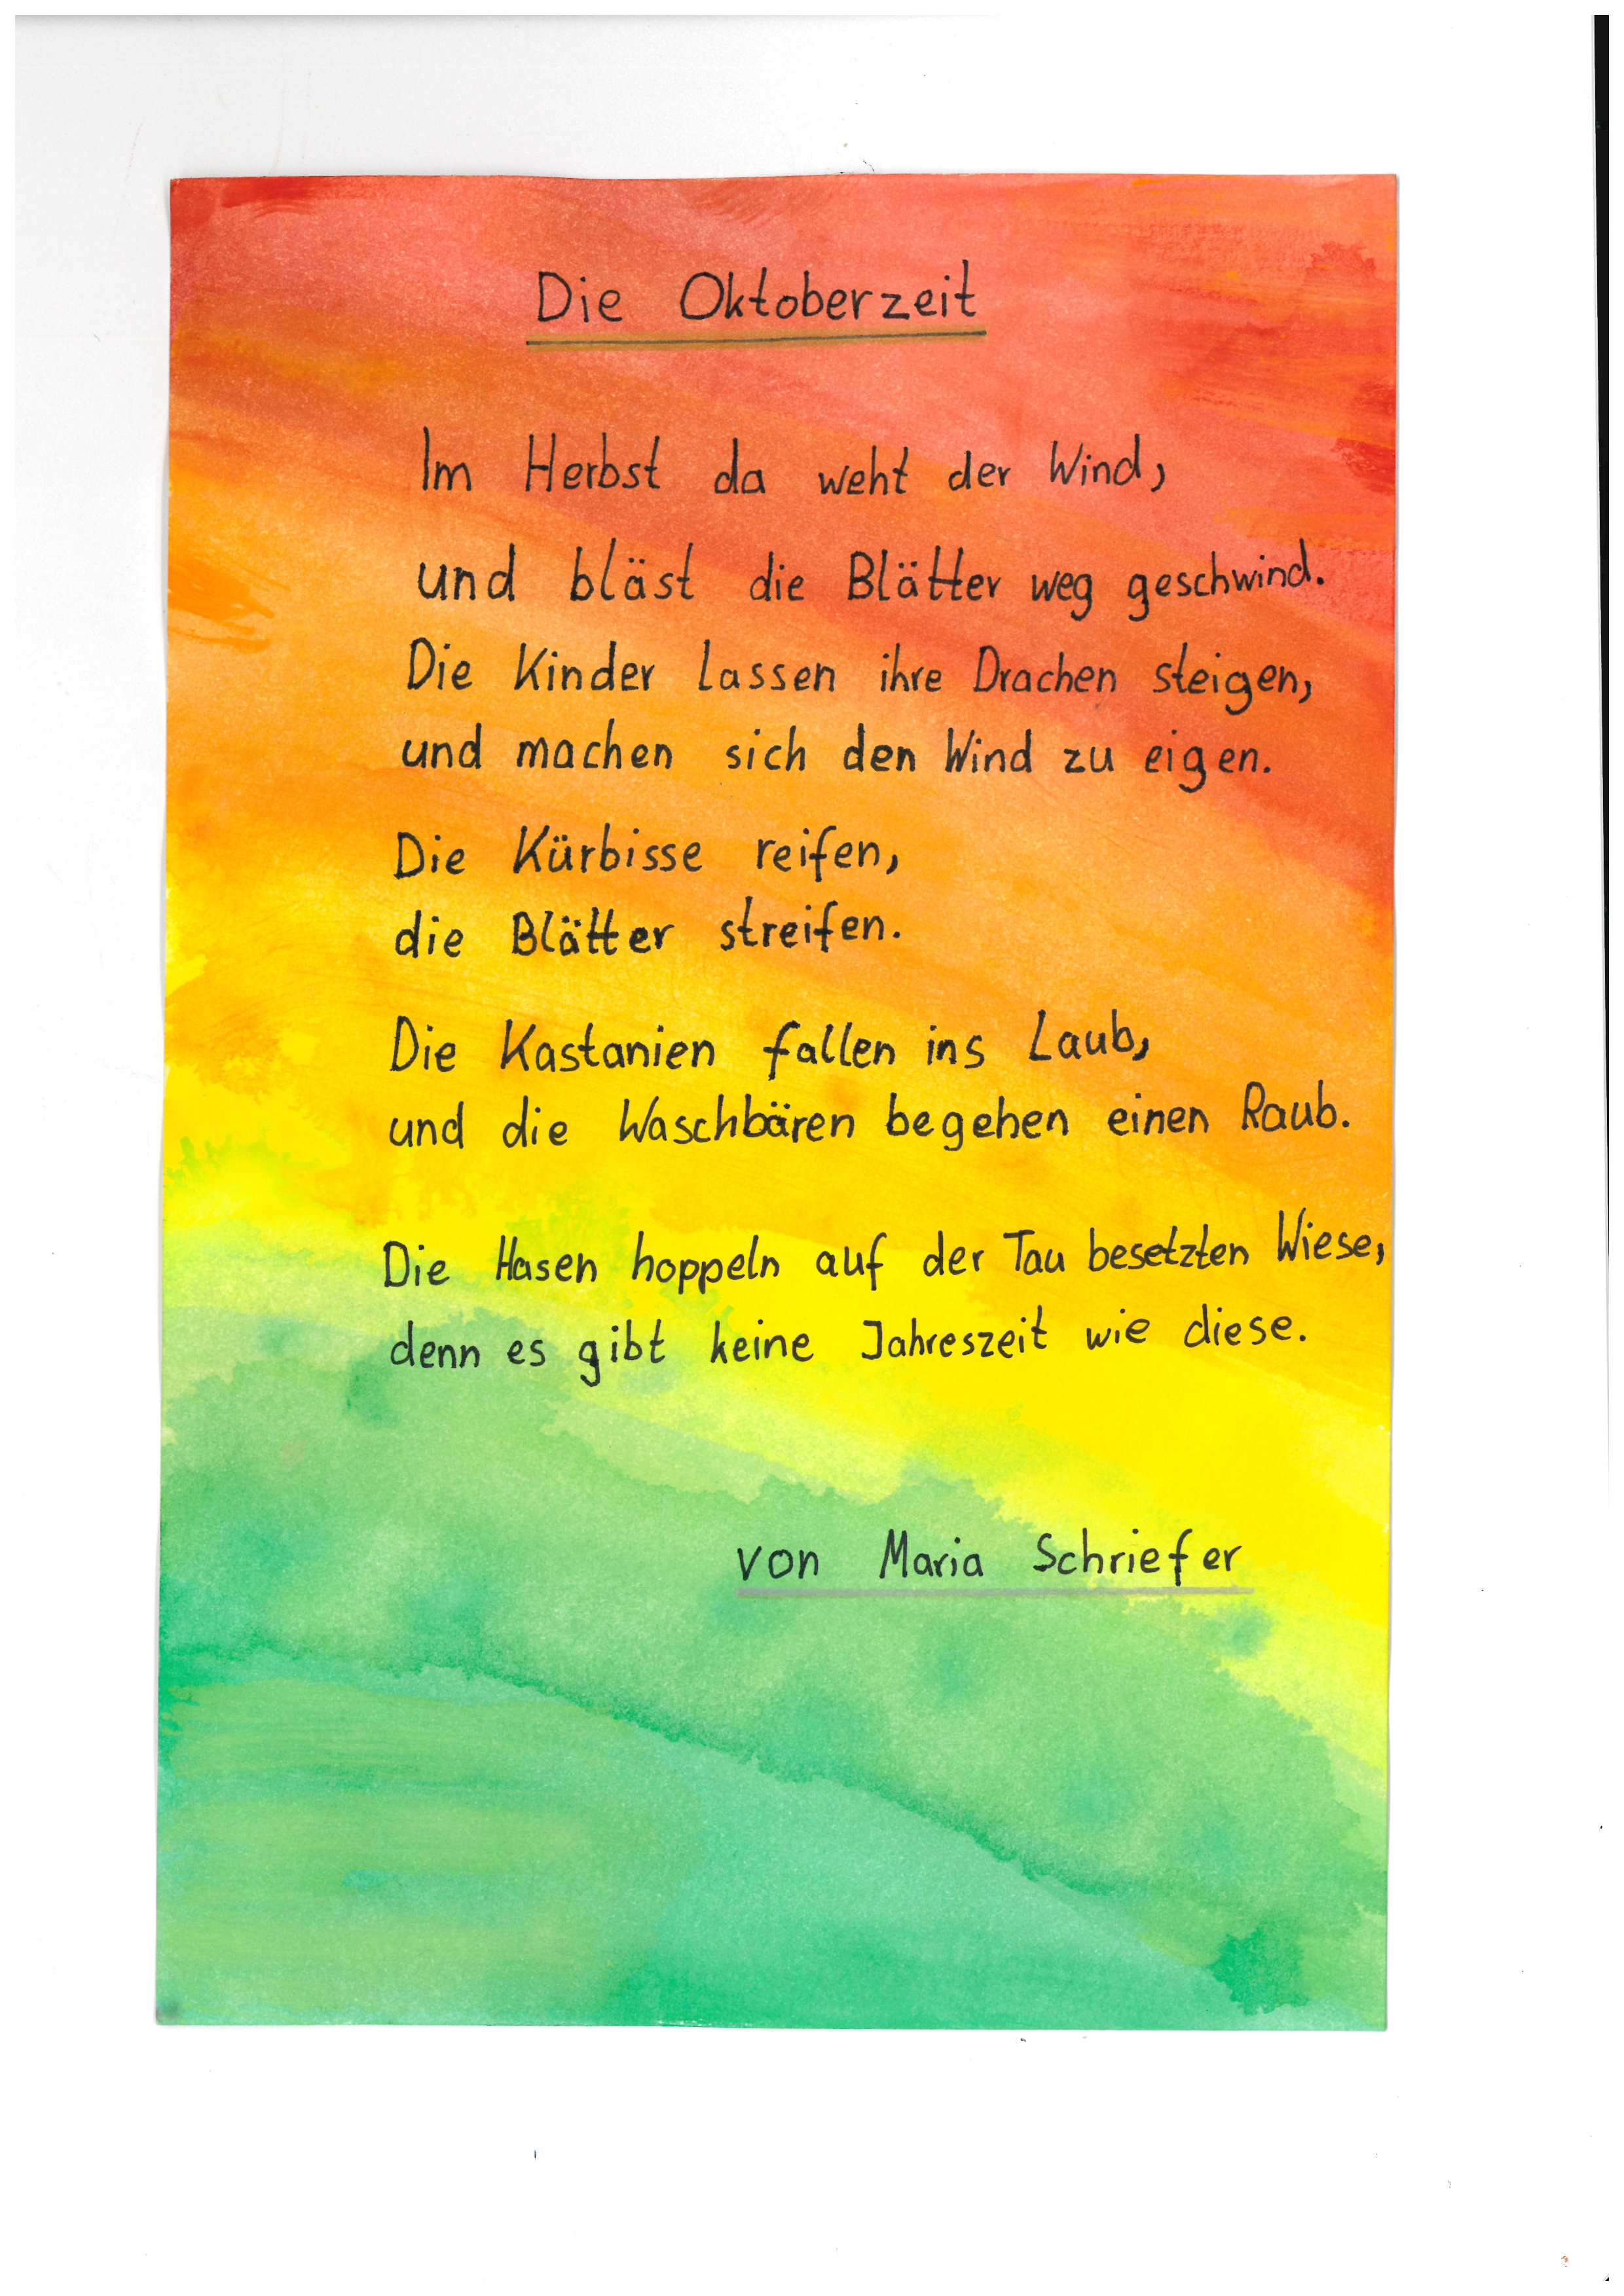 Die Oktoberzeit
Im Herbst da weht der Wind,
und bläst die Blätter weg geschwind.
Die Kinder lassen ihre Drachen steigen,
und machen sich den Wind zu eigen.
Die Kürbisse reifen,
die Blätter streifen.
Die Kastanien fallen ins Laub,
und die Waschbären begehen einen Raub.
Die Hasen hoppeln auf der Tau besetzten Wiese,
denn es gibt keine Jahreszeit wie diese.
von Maria Schriefer